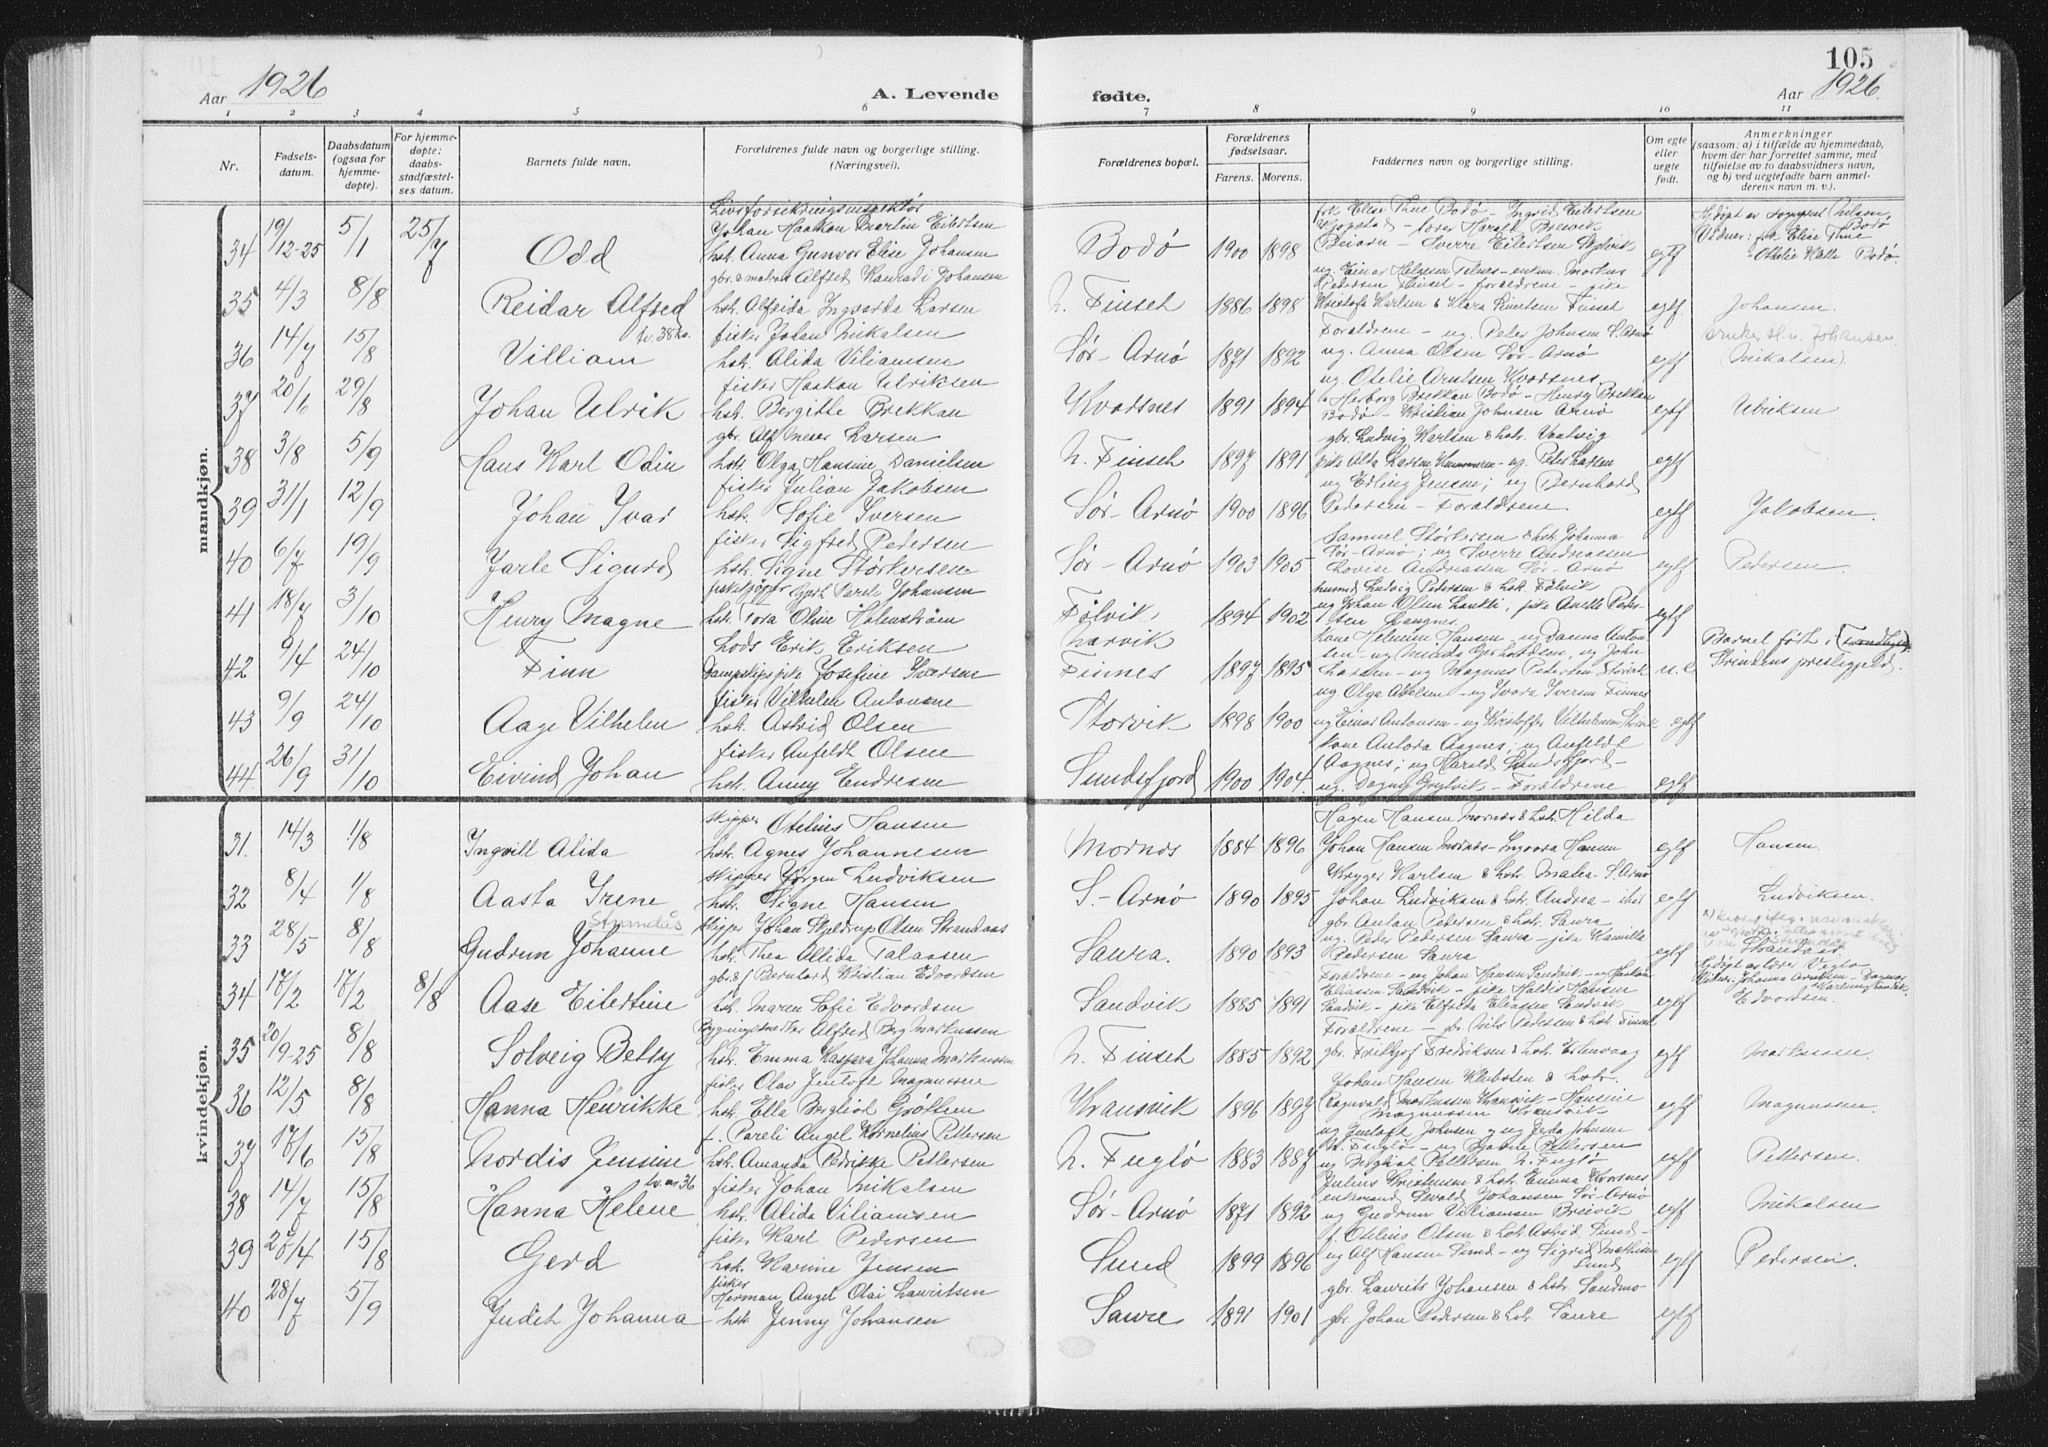 105
Aar 1926
A. Levende fødte.
Aar 1926.
1 2 3 4 5 6 7 8 9 10 11
Nr.
Fødsels-
datum.
Daabsdatum
(ogsaa for
hjemme-
døpte).
For hjemme-
døpte:
daabs-
stadfæstel-
ses datum.
Barnets fulde navn.
Forældrenes fulde navn og borgerlige stilling.
(Næringsvei).
Forældrenes bopæl.
Forældrenes
fødselsaar.
Farens. Morens.
Faddernes navn og borgerlige stilling.
Om egte
eller
uegte
født.
Anmerkninger
(saasom: a) i tilfælde av hjemmedaab,
hvem der har forrettet samme, med
tilføielse av to daabsvidners navn,
og b) ved uegtefødte barn anmel-
derens navn m. v.).
mandkjøn.
34 19/12-25 5/1 25/7 Odd
Livsforsikringsinspektør
Johan Haakon Martin Eilertsen
hst. Anna Gunvor Elise Johansen
Bodø 1900 1898
frk Elise Thue Bodø - Ingrid Eilertsen
Beiarn - Sverre Eilertsen
egtf
Vidner: frk Elise Thue
Bodø.
35 4/3 8/8 Reidar Alfred
gbr. & matros Alfred Konradi Johansen
hst. Alfrida Ingvarda Larsen
N. Finset 1886 1898
Pedersen Finset - forældrene - pike
Kristofa Karlsen & Klara Knutsen Finset
egtf Johansen.
36 14/7 15/8 Villiam
tv. 38 kv.
fisker Johan Mikalsen
hst. Alida Viliamsen
Sør-Arnø 1871 1892
Forældrene - ug. Peter Johnsen S. Arnø
ug. Anna Olsen Sør-Arnø
egtf
Johansen.
(Mikalsen).
37 20/6 29/8 Johan Ulrik
fisker Haakon Ulriksen
hst. Bergitte Brekkan
Kvarsnes 1891 1894
ug. Otelie Arntsen Kvarsnes
Herborg Brekkan Bodø - Henry Brekkan
Bodø - Kristian Johnsen Arnø
egtf Ulriksen
38 3/8 5/9 Hans Karl Odin
gbr. Alf Meier Larsen
hst. Olga Hansine Danielsen
N. Finset 1897 1891
gbr. Ludvig Karlsen & hst. Vaatvig
egtf
39 31/1 12/9 Johan Ivar
fisker Julian Jakobsen
hst. Sofie Iversen
Sør-Arnø 1900 1896
ug Erling Jensen; ug Bernhard
Pedersen - Forældrene
egtf Jakobsen.
40 6/7 19/9 Jarle Sigurd
fisker Sigfred Pedersen
hst. Signe Størkersen
Sør-Arnø 1903 1905
Samuel Størkersen & hst. Johanna
Sør-Arnø; ug Sverre Andreassen
Lovise Andreassen Sør-Arnø
egtf Pedersen.
41 18/7 3/10 Henry Magne
Gjert Pareli Johansen
hst. Tora Oline Holmstrøm
Følvik 1894 1902
Ludvig Pedersen & hst. Følvik
egtf
42 9/4 24/10 Finn
Lods Erik Eriksen
Dampskipspike Josefine Iversen
Narvik
Finnes 1897 1895
kone Helmine Hansen, ug Danna Anton-
sen - ug Minda Gerhardsen, ug John
Larsen - ug Magnus Petersen Storvik
u.e
Barnet født i
Strindens prestegjeld.
43 9/9 24/10 Aage Vilhelm
fisker Vilhelm Antonsen
hst. Astrid Olsen
Storvik 1898 1900
ug Olga Axelsen - ug Ivara Iversen Finnes
ug Einar Antonsen - ug Kristoffer Vilhelmsen Storvik
egtf
44. 26/9 31/10 Eivind Johan
fisker Anfeldt Olsen
hst. Anny Endresen
Sundsfjord 1900 1904.
kone Antora Aagnes; ug Anfeldt
Aagnes; ug Harald Sundsfjord -
ug. Dagny Grytvik - Forældrene
egtf
kvindekjøn.
31. 14/3 1/8 Ingvill Alida
skipper Otelius Hansen
hst. Agnes Johannesen
Mornes 1884 1896
Hagen Hansen Mornes & hst. Hilda
Johan Hansen Mornes - Ingvora Hansen
egtf Hansen.
32 8/4 1/8 Aasta Irene
skipper Jørgen Ludviksen
hst. Signe Hansen
S.-Arnø 1890 1895
Krøger Karlsen & hst. Matea S. Arnø
Johan Ludviksen & hst. Andrea - ibid
egtf Ludviksen.
33 28/5 8/8 Gudrun Johanne
Strandås
skipper Johan Skjeldrup Olsen Strandaas
hst. Thea Allida Talaasen
Saura. 1890 1893
gbr. Anton Pedersen & hst. Saura
ug. Peder Pedersen Saura - pike Kamilla
Pedersen Saura
egtf
34 17/2 17/2 8/8 Aase Eilertine
gbr. & f Bernhard Kristian Edvardsen
hst. Maren Sofie Edvardsen
Sandvik 1885 1891
Forældrene - ug Johan Hansen Sandvik - ug Haakon
Eliassen Sandvik - pike Haldis Hansen
Sandvik - pike Elfrida Eliassen Sandvik
egtf Edvardsen.
35 20/9-25 8/8 Solveig Betsy
Bygningssnekker Alfred Berg Markussen
hst. Emma Kaspara Johanna Markussen
N. Finset 1885 1892
Forældrene - gbr. Nils Pedersen & hst. Finset
gbr. Fridtjof Fredriksen & hst.
egtf Markussen.
36 12/5 8/8 Hanna Henrikke
fisker Olav Jentoft Magnussen
hst. Ella Bergliot Grøttem
Kransvik 1896 1897
Johan Hansen & hst.
Ragnvald Markussen Kransvik - Hansine
Magnussen Kransvik
egtf Magnussen.
37 17/6 15/8 Nordis Jensine
f. Pareli Angel Kornelius Pettersen
hst. Amanda Pedrikke Pettersen
N. Fuglø 1883 1887
ug Jentoft Johnsen, ug Gyda Johnsen
N. Fuglø - ug Pettersen
ug Bergliot Pettersen N. Fuglø
egtf Pettersen.
38 14/7 15/8 Hanna Helene
tv. m 36
fisker Johan Mikalsen
hst. Alida Viliamsen
Sør-Arnø 1871 1892
Julius Kristensen & hst. Emma Kvarsnes
enkemand Sevald Johansen Sør-Arnø
ug Gudrun Viliamsen Breivik
egtf Mikalsen
39 26/4 15/8 Gerd
fisker Karl Pedersen
hst. Karine Jensen
Sund 1899 1896
f. Otelius Olsen & hst. Astrid Sund -
ug Alf Hansen Sund - ug Sigrid Mathisen
Sund
egtf Pedersen.
40 28/7 5/9 Judith Johanna
fisker
Herman Angel Olai Lauritsen
hst. Jenny Johansen
Saure 1891 1901
gbr. Laurits Johansen & hst. Sandmo
gbr. Johan Pedersen & hst. Saure
egtf